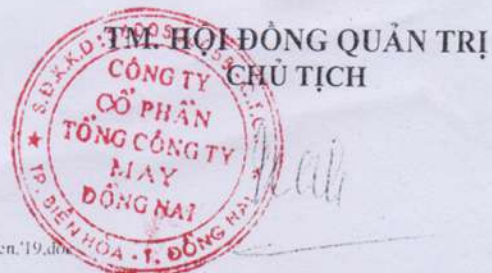 TM. HỘI ĐỒNG QUẢN TRỊ
CHỦ TỊCH
S.Đ.K.K.D
CÔNG TY
CỔ PHẦN
TỔNG CÔNG TY
MAY
ĐỒNG NAI
TP. BIÊN HÒA - T. ĐỒNG NAI